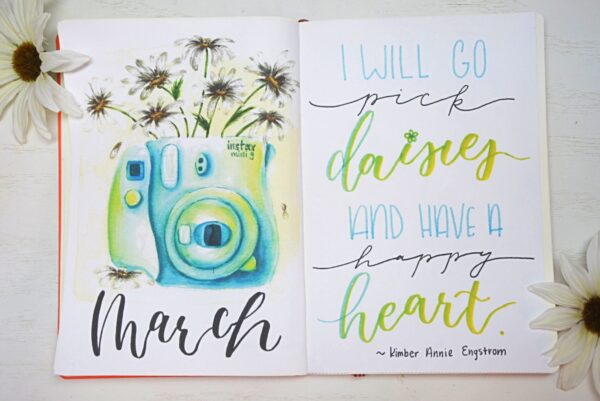 instax
mini 9
March
I WILL GO
pick
daisies
AND HAVE A
happy
heart.
~ Kimber Annie Engstrom